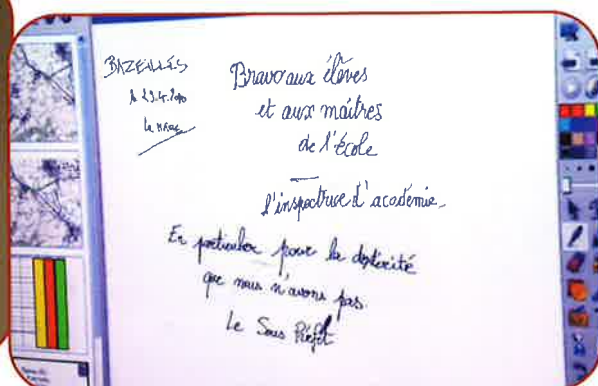 BAZEILLES
Le Maire
Bravo aux élèves
et aux maîtres
de l'école
l'inspectrice d'académie
En particulier pour la dextérité
que nous n'avons pas
Le Sous Préfet